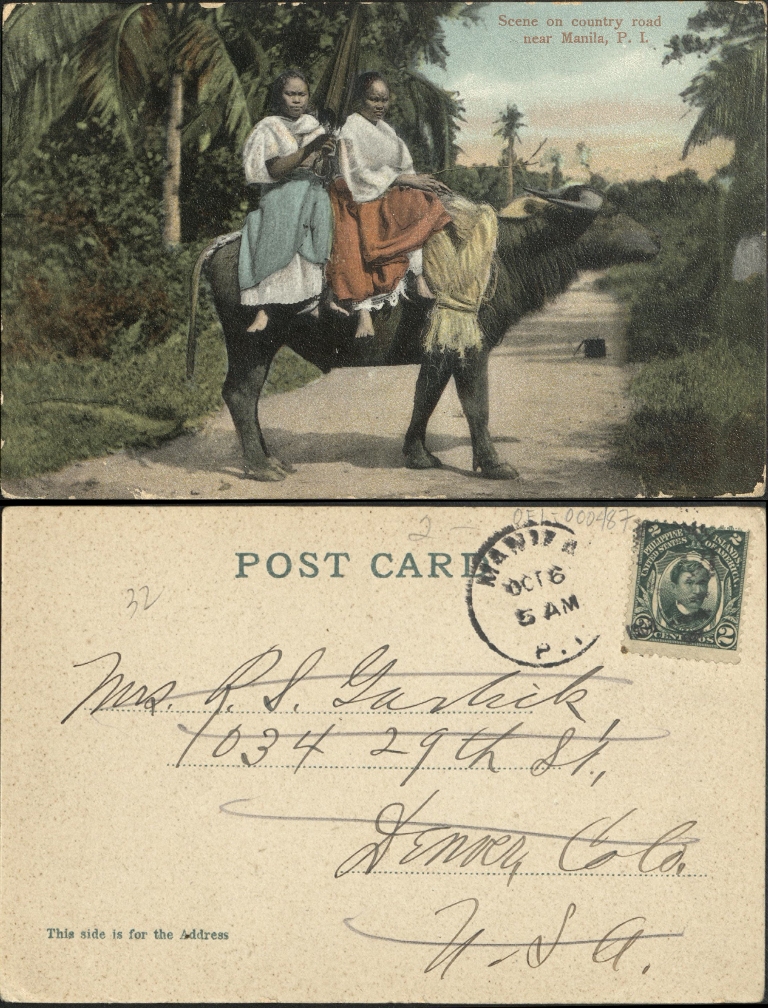 Scene on country road
near Manila, P. I.
2 -
OEI-000487
POST CARD
32
MANILA
OCT 6
5 AM
P. I.
2 2
PHILIPPINE ISLANDS
UNITED STATES OF AMERICA
2 CENTAVOS 2
Mrs. R. S. Garlick
1034 29th St.,
Denver, Colo.
U. S. A.
This side is for the Address